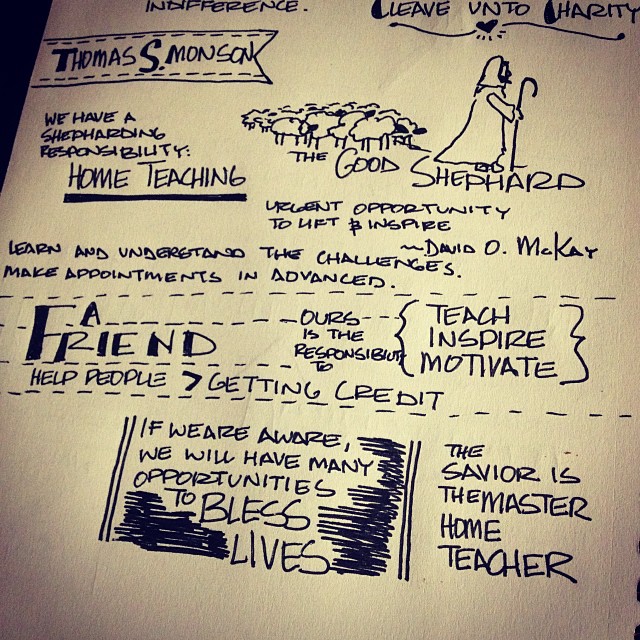 INDIFFERENCE.
CLEAVE UNTO CHARITY
THOMAS S. MONSON
WE HAVE A
SHEPHARDING
RESPONSIBILITY:
HOME TEACHING
THE GOOD SHEPHARD
URGENT OPPORTUNITY
TO LIFT & INSPIRE
~DAVID O. McKAY
LEARN AND UNDERSTAND THE CHALLENGES.
MAKE APPOINTMENTS IN ADVANCED.
A
FRIEND
OURS
IS THE
RESPONSIBILITY
TO
TEACH
INSPIRE
MOTIVATE
HELP PEOPLE > GETTING CREDIT
IF WE ARE AWARE,
WE WILL HAVE MANY
OPPORTUNITIES
TO BLESS
LIVES
THE
SAVIOR IS
THE MASTER
HOME
TEACHER